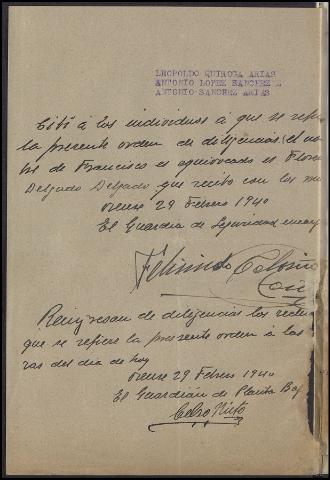 LEOPOLDO QUIROGA ARIAS
ANTONIO LOPEZ SANCHEZ
ANTONIO SANCHEZ ARIAS
Citó á los individuos á que se refie
la presente orden de diligencias (el nom
bre de Francisco es equivocado es Floren
Delgado Delgado, que recibo con los mis
Orense 29 Febrero 1940
El Guardia de Seguridad encarg
Reingresan de diligencias los reclu
que se refiere la presente orden á las
ras del dia de hoy
Orense 29 Febrero 1940
El Guardián de Planta Baj
Celso Nieto